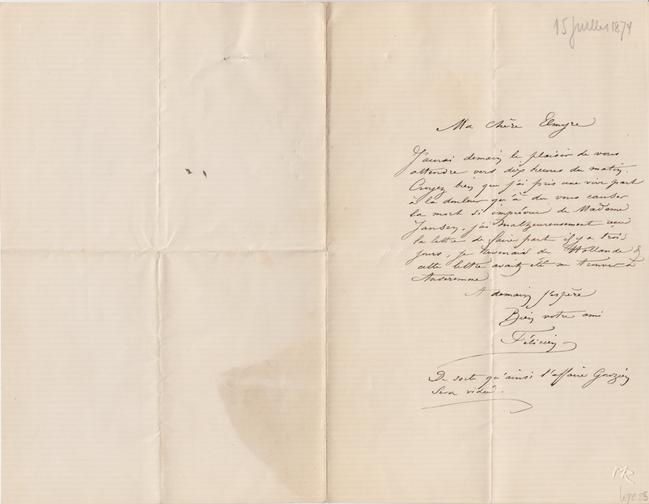 15 Juillet 1874
Ma chère Elmyre
J'aurai demain le plaisir de vous
attendre vers dix heures du matin.
Croyez bien que j'ai pris une vive part
à la douleur qu'a du vous causer
la mort si imprévue de Madame
Jansen, j'ai malheureusement reçu
la lettre de faire part il y a trois
jours, je revenais de Hollande &
cette lettre avait été me trouver à
Anseremme
A demain j'espère
Bien votre ami
Félicien
De sorte qu'ainsi l'affaire Gouzien
sera vidée.